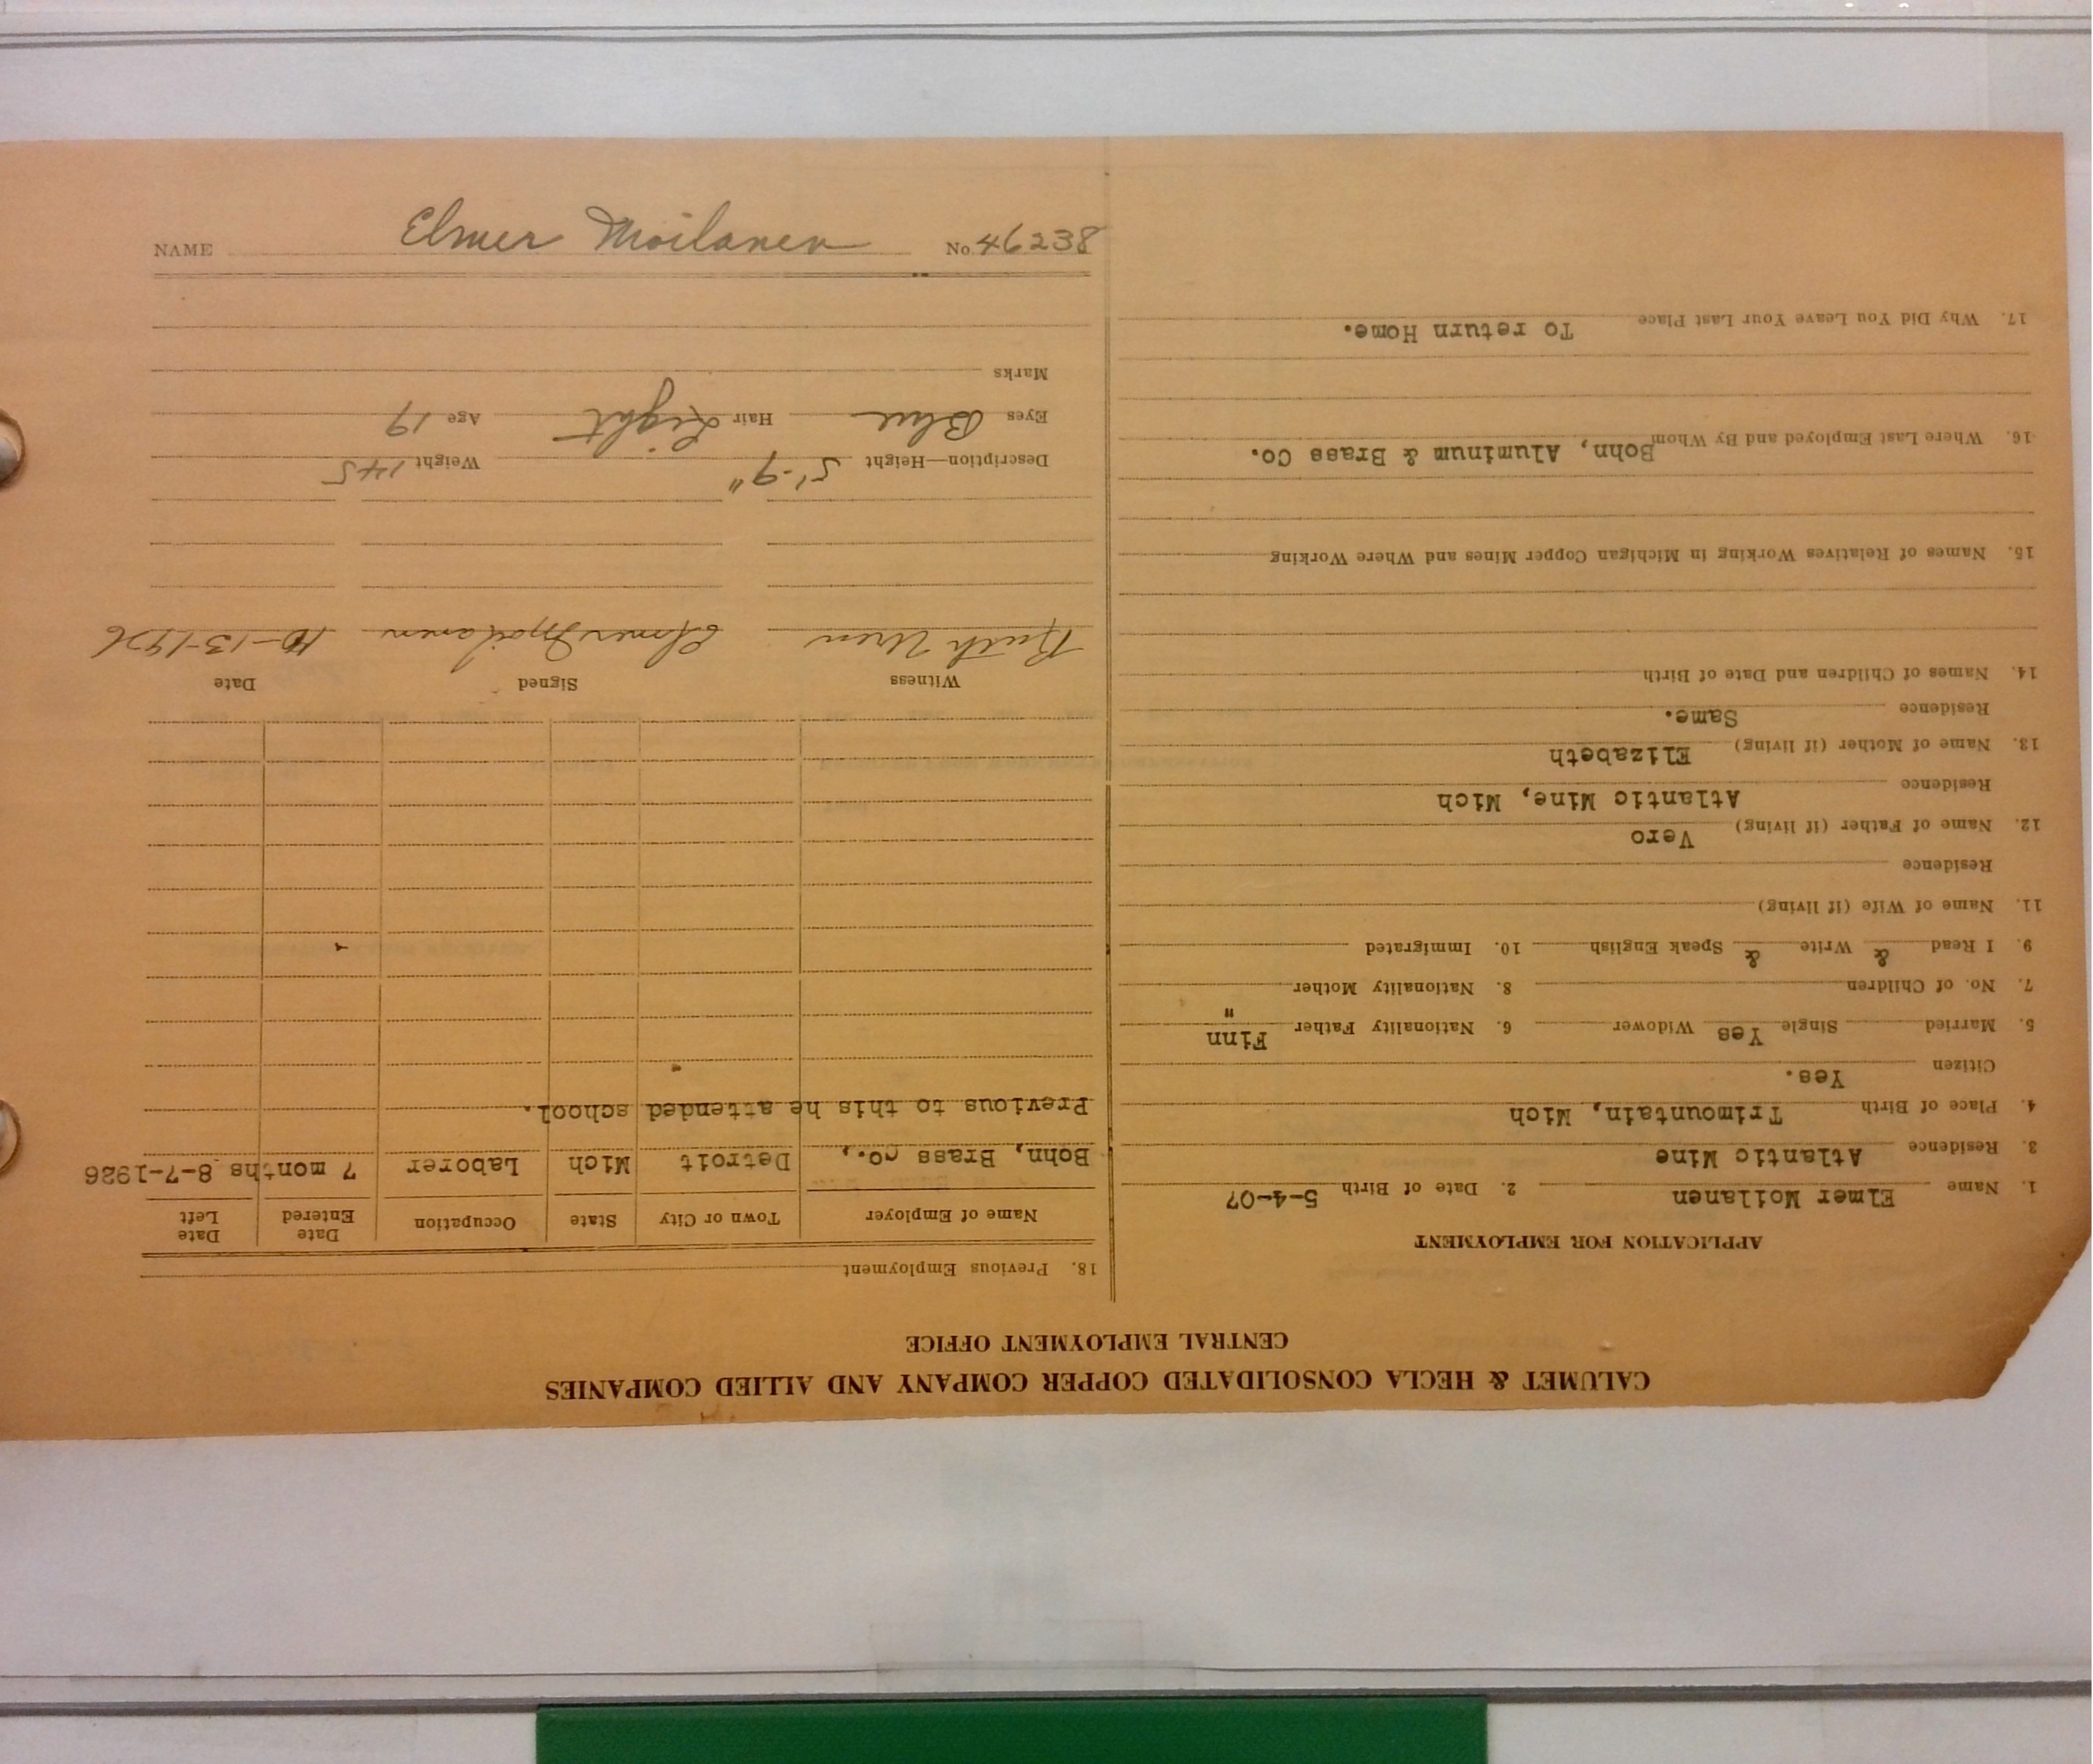 CALUMET & HECLA CONSOLIDATED COPPER COMPANY AND ALLIED COMPANIES
CENTRAL EMPLOYMENT OFFICE
APPLICATION FOR EMPLOYMENT
1. Name Elmer Moilanen 2. Date of Birth 5-4-07
3. Residence Atlantic Mine
4. Place of Birth Trimountain, Mich
Citizen Yes.
5. Married Single Yes Widower 6. Nationality Father Finn
7. No. of Children 8. Nationality Mother "
9. I Read & Write & Speak English 10. Immigrated
11. Name of Wife (if living)
Residence
12. Name of Father (if living) Vero
Residence Atlantic Mine, Mich
13. Name of Mother (if living) Elizabeth
Residence Same.
14. Names of Children and Date of Birth
15. Names of Relatives Working in Michigan Copper Mines and Where Working
16. Where Last Employed and By Whom Bohn, Aluminum & Brass Co.
17. Why Did You Leave Your Last Place To return Home.
18. Previous Employment
Name of Employer Town or City State Occupation Date Entered Date Left
Bohn, Brass Co., Detroit Mich Laborer 7 months 8-7-1926
Previous to this he attended school.
Witness Signed Date
Ruth Uren Elmer Moilanen 10-13-1926
Description—Height 5'-9" Weight 145
Eyes Blue Hair Light Age 19
Marks
NAME Elmer Moilanen No. 46238